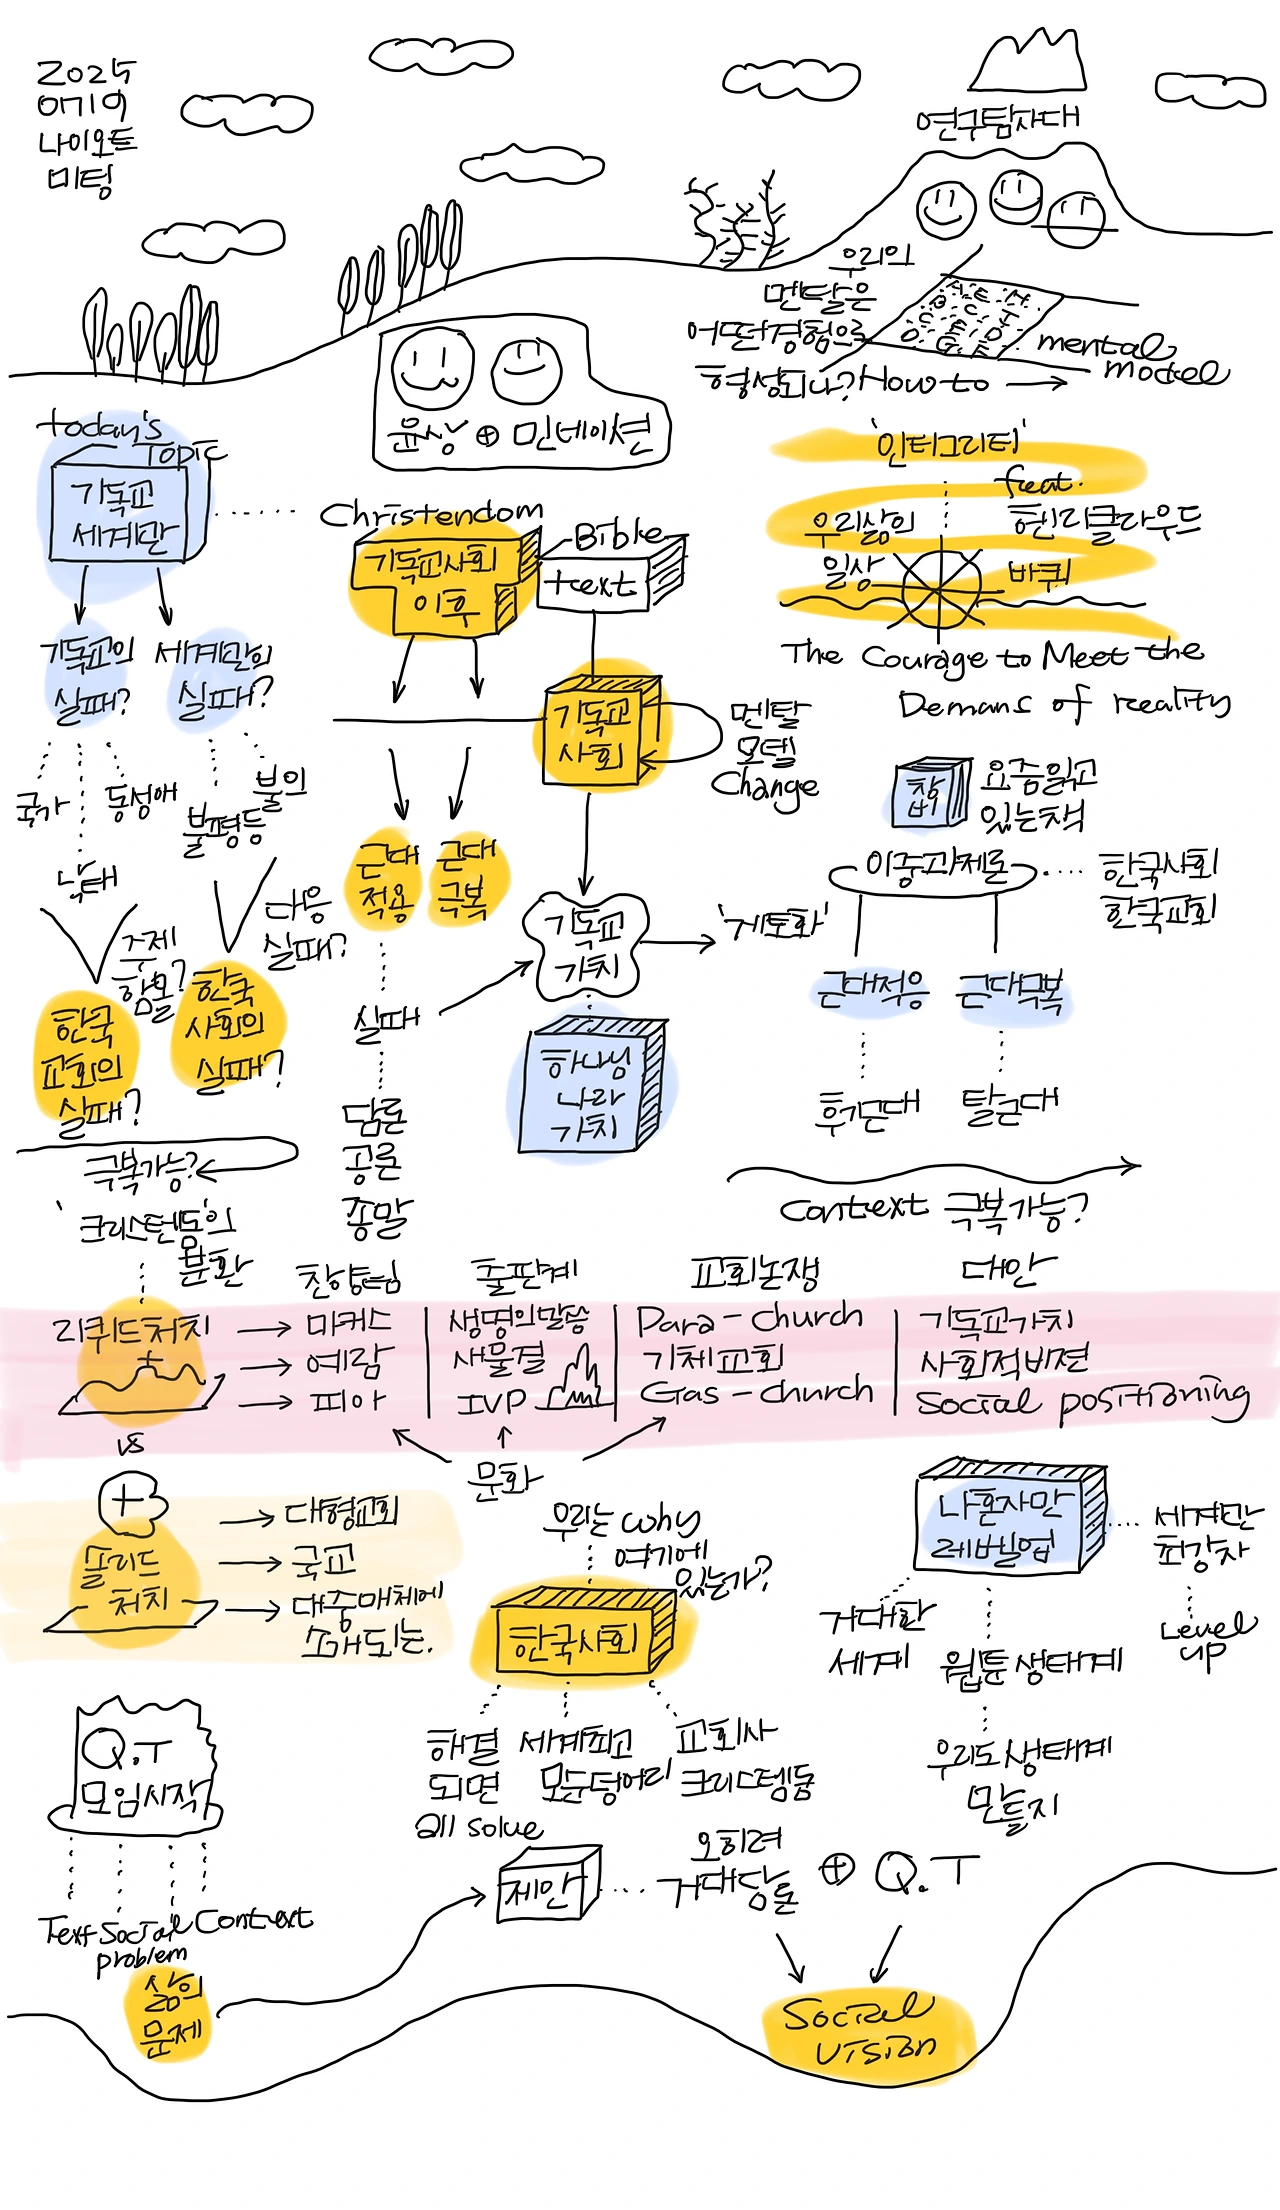 2025
여기의
나이오트
미팅
연구탐사대
우리의
멘탈은
어떤경험으로
형성되나? How to
mental
model
윤상 ⊕ 민네이션
today's
Topic
기독교
세계관
기독교의
실패?
세계관의
실패?
국가
동성애
낙태
불평등
불의
주제
함몰?
대응
실패?
한국
교회의
실패?
한국
사회의
실패?
극복가능?
'크리스텐돔'의
분화
Christendom
기독교사회
이후
Bible
text
기독교
사회
멘탈
모델
Change
근대
적응
근대
극복
실패
담론
공론
종말
기독교
가치
'게토화'
하나님
나라
가치
'인티그리티'
feat.
헨리클라우드
우리삶의
일상
바퀴
The Courage to Meet the
Demans of reality
창비
요즘읽고
있는책
이중과제론
한국사회
한국교회
근대적응
근대극복
후기근대
탈근대
Context 극복가능?
찬양팀
출판계
교회논쟁
대안
리퀴드처치
마커스
예람
피아
생명의말씀
새물결
IVP
Para-church
기체교회
Gas-church
기독교가치
사회적비전
Social positioning
vs
문화
솔리드
처치
대형교회
국교
대중매체에
소개되는.
우리는 why
여기에
있는가?
한국사회
해결
되면
all solve
세계최고
모순덩어리
교회사
크리스텐돔
나혼자만
레벨업
세계관
최강자
Level
up
거대한
세계
웹툰생태계
우리도생태계
만들지
Q.T
모임시작
Text
Social
problem
Context
삶의
문제
제안
오히려
거대담론
⊕ Q.T
Social
vision